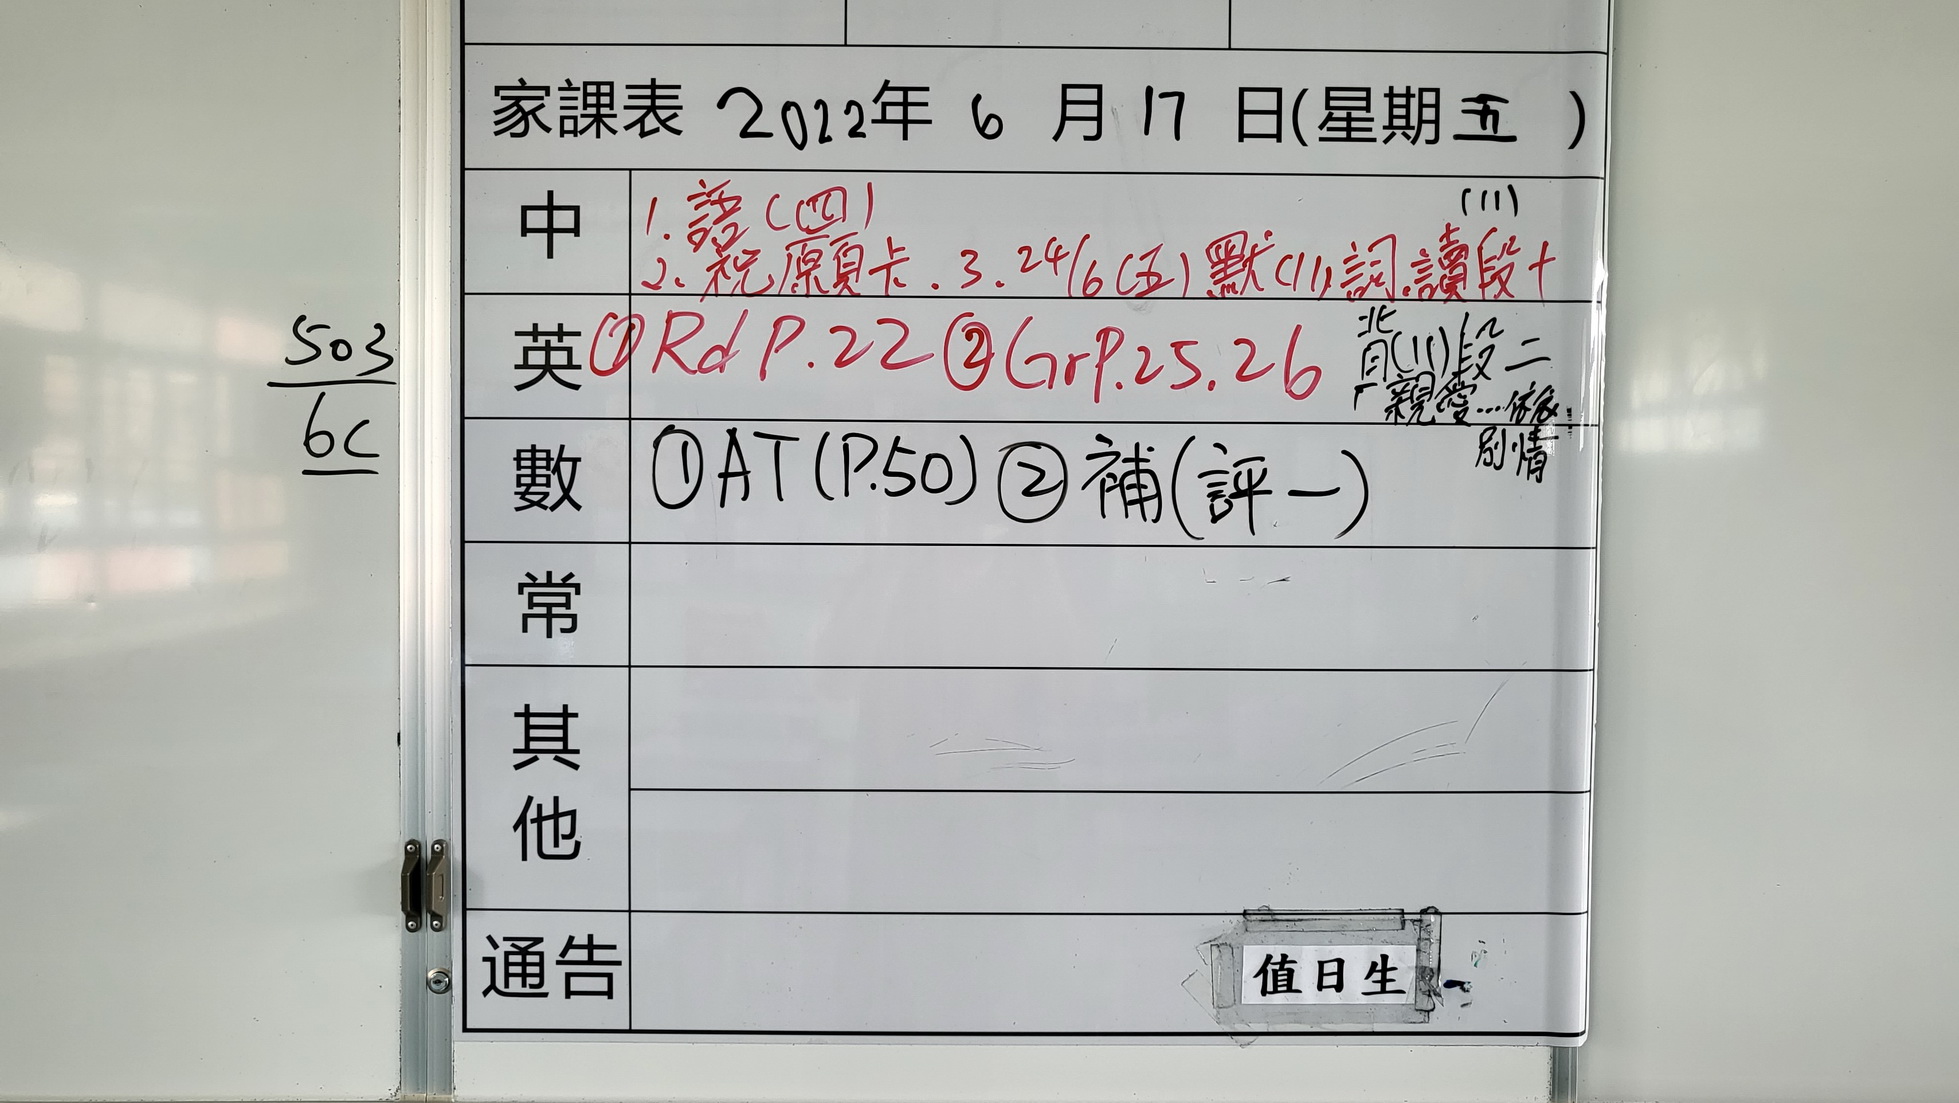 家課表 2022年 6 月 17 日(星期五)
中
1. 語(四)
(11)
2. 祝願卡. 3. 24/6(五)默(11)詞.讀段+
503
6C
英
①Rd P.22 ②Gr P.25.26
背(11)段二
「親愛....依依
別情
數
①AT(P.50) ②補(評一)
常
其他
通告
值日生